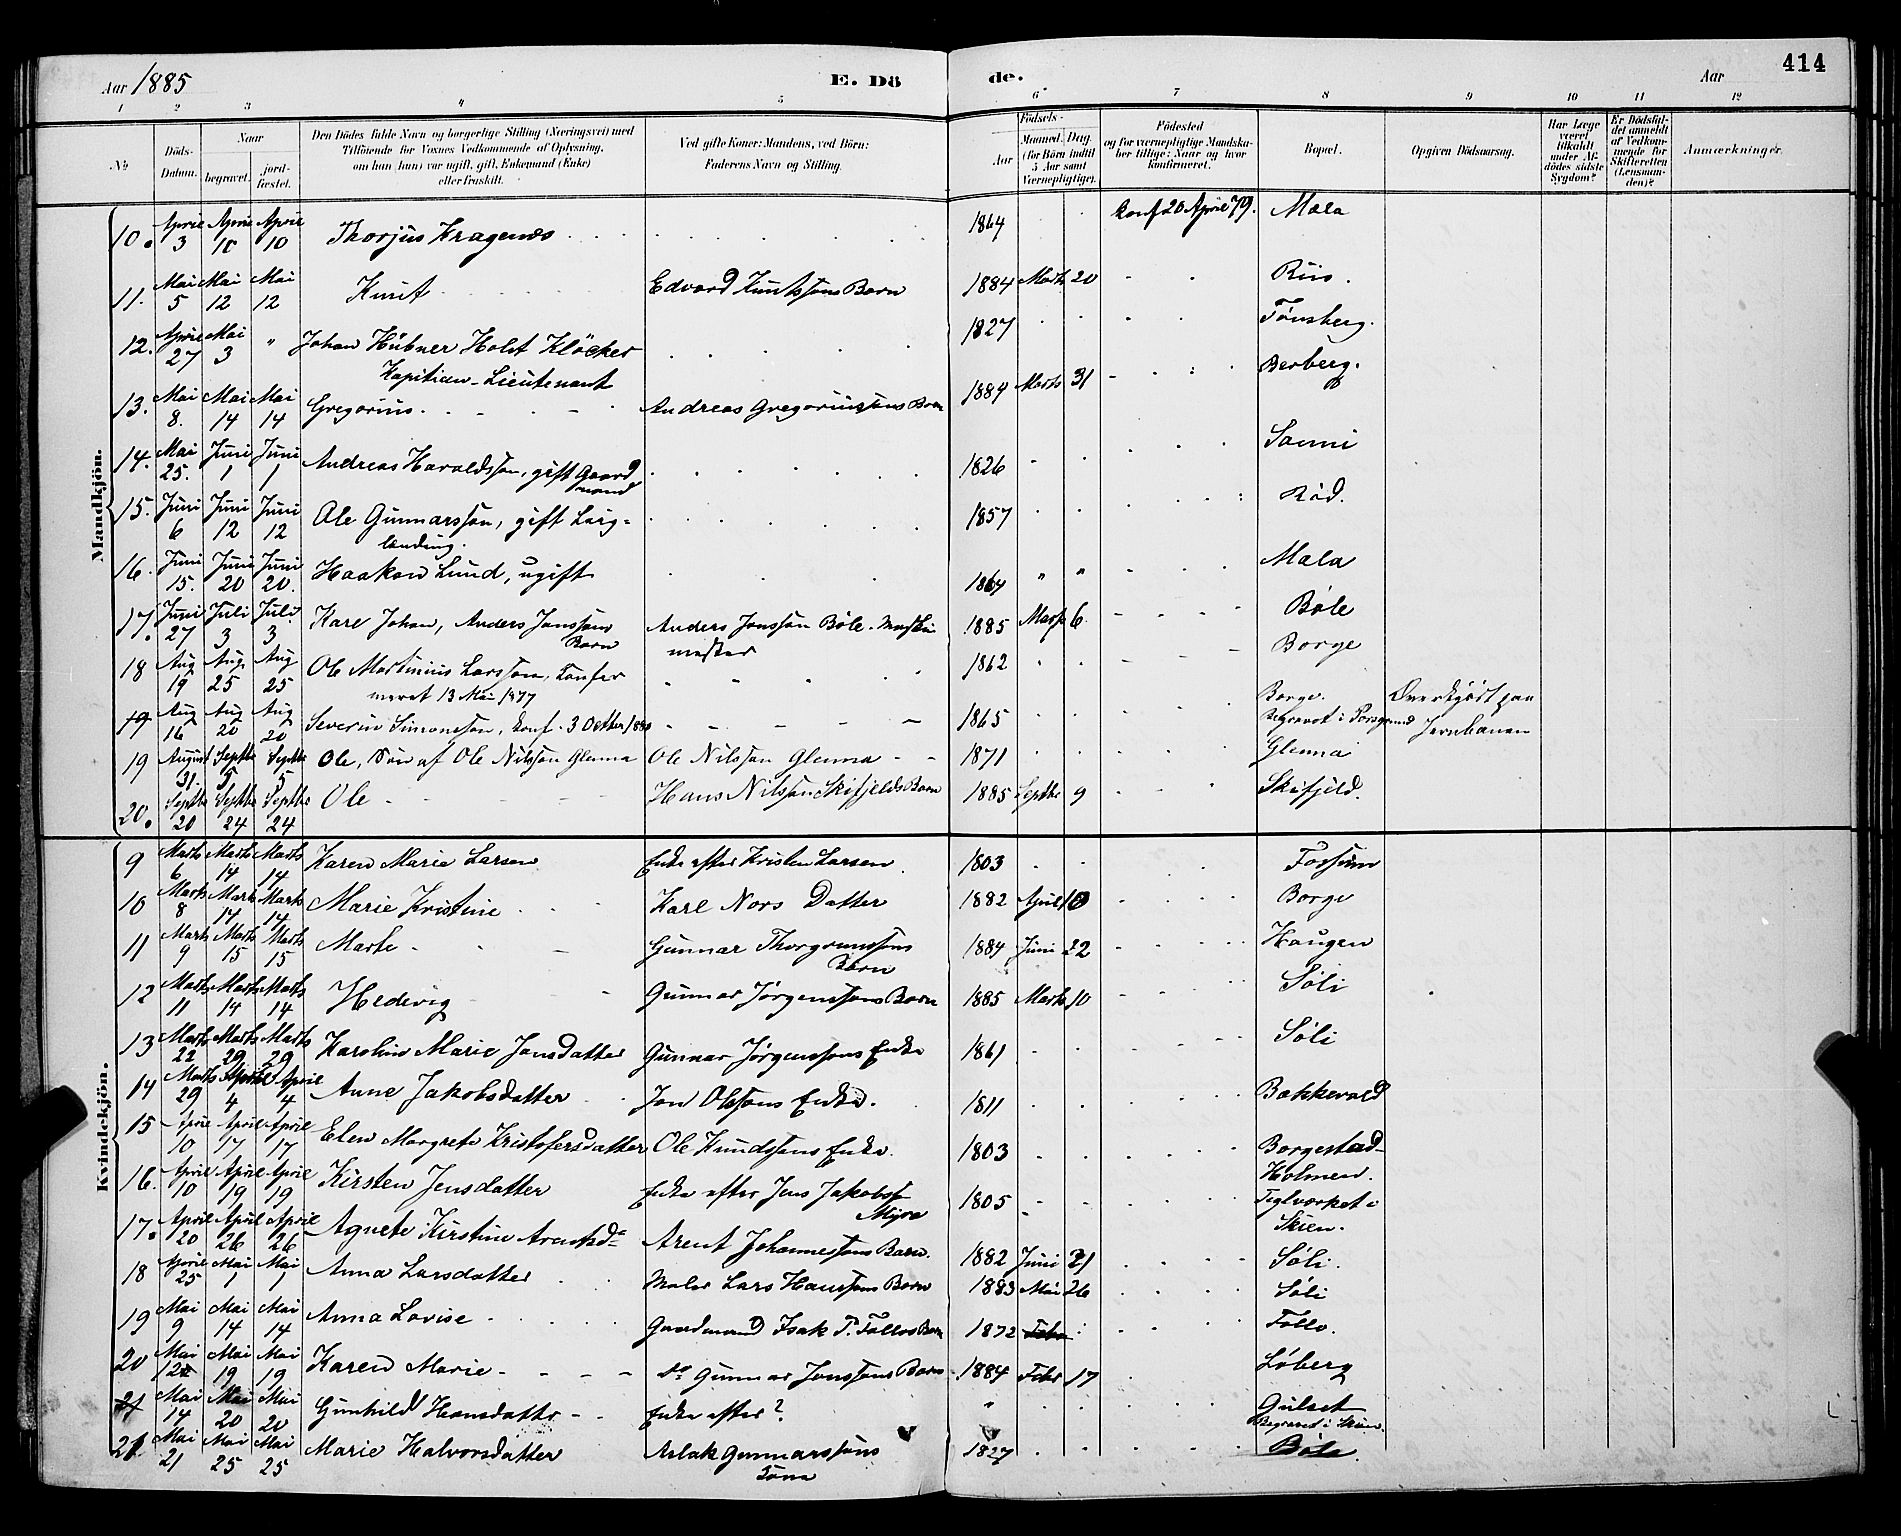 Aar 1885 E. Dö de. Aar 414
1 2 3 4 5 6 7 8 9 10 11 12
No
Döds-Datum.
Naar begravet. jordfæstet.
Den Dödes fulde Navn og borgerlige Stilling (Næringsvei) med
Tilföiende for Voxnes Vedkommende af Oplysning,
om han (hun) var ugift, gift, Enkemand (Enke)
eller fraskilt.
Ved gifte Koner: Mandens, ved Börn:
Faderens Navn og Stilling.
Födsels-
Aar Maaned. Dag.
(for Börn indtil 5 Aar samt Værnepligtige).
Födested
og for værnepligtige Mandskaber tillige: Naar og hvor konfirmeret.
Bopæl.
Opgiven Dödsaarsag.
Har Læge været tilkaldt under Afdödes sidste Sygdom?
Er Dödsfaldet anmeldt af Vedkommende for Skifteretten (Lensmanden)?
Anmærkninger.
Mandkjön.
10. April 3 April 10 April 10 Thorjus Kragenæs 1864 Konf 20 April 79. Mæla
11. Mai 5 Mai 12 Mai 12 Knut Edvard Knutssons Barn 1884 Marts 20 Riis.
12. April 27 Mai 3 " Johan Hübner Holst Klöcker 1827 Tønsberg.
Kapitian-Lieutenant
13. Mai 8. Mai 14 Mai 14 Gregorius. Andreas Gregoriussons Barn 1884 Marts 31 Berberg.
14. Mai 25. Juni 1 Juni 1 Andreas Haraldsson, gift Gaardmand 1826 Sanni
15. Juni 6 Juni 12 Juni 12 Ole Gunnarsson, gift Leiglænding. 1857 Röd.
16. Juni 15. Juni 20 Juni 20. Haakon Lund, ugift 1864 " " Mæla
17. Juni 27 Juli 3 Juli 3 Karl Johan, Anders Jonssons Barn Anders Jonsson Bøle. Maskinmester 1885 Marts 6. Bøle
18 Aug 19 Aug. 25 Aug 25 Ole Martinius Larsson, konfirmeret 13 Mai 1877 1862 Borge
19 Aug 16 Aug 20 Aug 20 Severin Simonsson, konf. 3 October 1880 1865 Borge. Begravet i Porsgrund Overkjørt paa Jernbanen
19 August 31 Septbr 5 Septbr 5 Ole, Søn af Ole Nilsson Glenna Ole Nilsson Glenna 1871 Glenna
20. Septbr 20 Septbr 24 Septbr 24 Ole Hans Nilsson Skifjelds Barn 1885 Septbr 9 Skifjeld.
Kvindekjön.
9 Marts 6 Marts 14 Marts 14 Karen Marie Larsen Enke efter Kristen Larsen 1803 Fossum
10 Marts 8 Marts 14 Marts 14 Marie Kristine Karl Nors Datter 1882 April 10 Borge
11 Marts 9 Marts 15 Marts 15 Marte Gunnar Thorgrimssons Barn 1884 Juni 22 Haugen
12 Marts 11 Marts 14 Marts 14 Hedevig Gunnar Jørgenssons Barn 1885 Marts 10 Søli
13 Marts 22 Marts 29 Marts 29 Karoline Marie Jonsdatter Gunnar Jørgenssons Enke 1861 Søli
14 Marts 29 April 4 April 4 Anne Jakobsdatter Jon Olssons Enke. 1811 Bakkevold
15 April 10 April 17 April 17 Elen Margrete Kristofersdatter Ole Knudssons Enke 1803 Borgestad-Holmen.
16. April 10 April 19 April 19 Kirsten Jensdatter Enke efter Jens Jakobss Myra 1805 Teglværket i Skien.
17. April 20 April 26 April 26 Agnete Kirstine Arentsd= Arent Johannessons Barn. 1882 Juni 21 Søli.
18 April 25 Mai 1 Mai 1 Anna Larsdatter Maler Lars Hanssons Barn 1883 Mai 26 Søli
19 Mai 9 Mai 14 Mai 14 Anna Lovise Gaardmand Isak P. Follos Barn 1872 Follo.
20 Mai 12 Mai 19 Mai 19 Karen Marie do Gunnar Jonssons Barn 1884 Febr 17 Løberg
21 Mai 14 Mai 20 Mai 20 Gunhild Hansdatter Enke efter? " Gulset Begravet i Skien.
21. Mai 21 Mai 25 Mai 25 Marie Halvorsdatter Aslak Gunnarssons Kona 1827 Bøle.